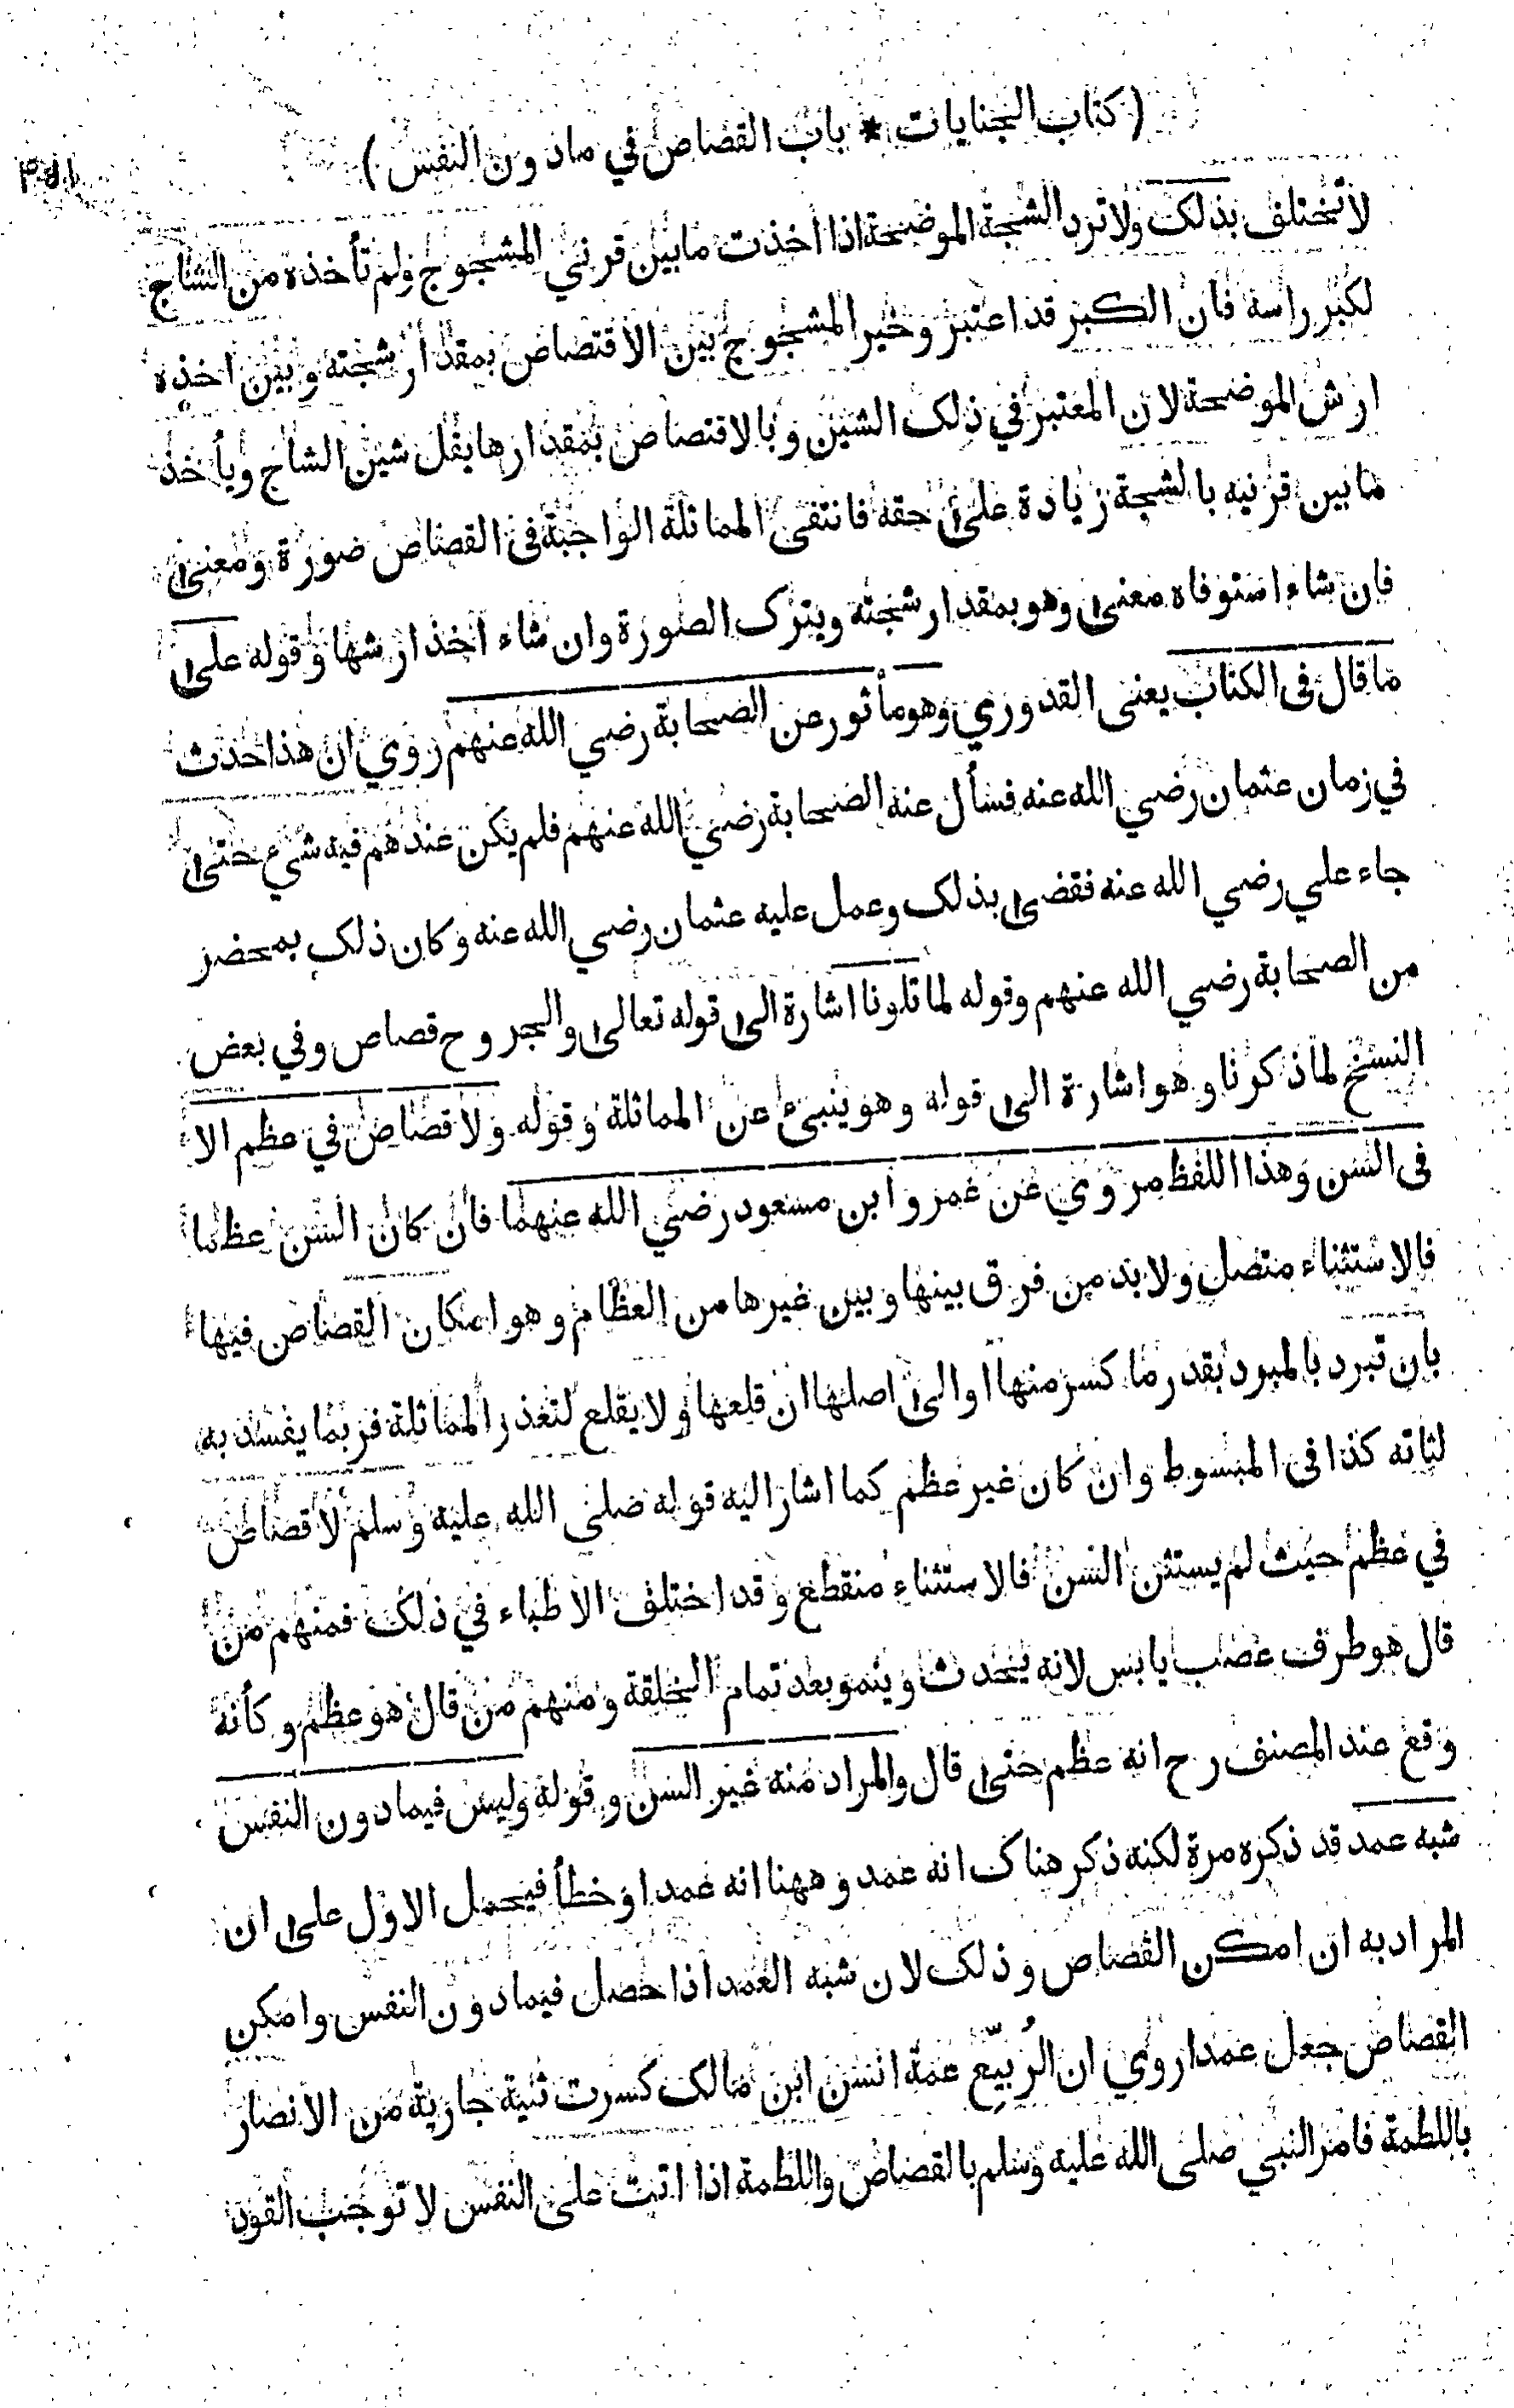 ( كتاب الجنايات * باب القصاص في مادون النفس )
لا تختلف بذلك ولا ترد الشجة الموضحة اذا اخذت مابين قرني المشجوج ولم تأخذه من الشاج
لكبر راسه فان الكبر قد اعتبر وخير المشجوج بين الاقتصاص بمقدار شجته وبين اخذه
ارش الموضحة لان المعتبر في ذلك الشين وبالاقتصاص بمقدارها يقل شين الشاج ويأخذ
مابين قرنيه بالشجة زيادة على حقه فانتفى المماثلة الواجبة فى القصاص صورة ومعنى
فان شاء استوفاه معنى وهو بمقدار شجته ويترك الصورة وان شاء اخذ ارشها وقوله على
ماقال فى الكتاب يعنى القدوري وهومأثور عن الصحابة رضي الله عنهم روي ان هذا حدث
في زمان عثمان رضي الله عنه فسأل عنه الصحابة رضي الله عنهم فلم يكن عندهم فيه شيء حتى
جاء علي رضي الله عنه فقضى بذلك وعمل عليه عثمان رضي الله عنه وكان ذلك بمحضر
من الصحابة رضي الله عنهم وقوله لما تلونا اشارة الى قوله تعالى والجروح قصاص وفي بعض
النسخ لما ذكرنا وهو اشارة الى قوله وهو ينبئ عن المماثلة وقوله ولا قصاص في عظم الا
فى السن وهذا اللفظ مروي عن عمر وابن مسعود رضي الله عنهما فان كان السن عظما
فالاستثناء متصل ولابد من فرق بينها وبين غيرها من العظام وهو امكان القصاص فيها
بان تبرد بالمبرد بقدر ما كسر منها او الى اصلها ان قلعها ولا يقلع لتعذر المماثلة فربما يفسد به
لثاته كذا فى المبسوط وان كان غير عظم كما اشار اليه قوله صلى الله عليه وسلم لا قصاص
في عظم حيث لم يستثن السن فالاستثناء منقطع وقد اختلف الاطباء في ذلك فمنهم من
قال هو طرف عصب يابس لانه يحدث وينمو بعد تمام الخلقة ومنهم من قال هو عظم وكأنه
وقع عند المصنف رح انه عظم حتى قال والمراد منه غير السن وقوله وليس فيما دون النفس
شبه عمد قد ذكره مرة لكنه ذكر هناك انه عمد وههنا انه عمد او خطأ فيحمل الاول على ان
المراد به ان امكن القصاص وذلك لان شبه العمد اذا حصل فيما دون النفس وامكن
القصاص جعل عمدا روي ان الرُبيّع عمة انس ابن مالك كسرت ثنية جارية من الانصار
باللطمة فامر النبي صلى الله عليه وسلم بالقصاص واللطمة اذا اتت على النفس لا توجب القود